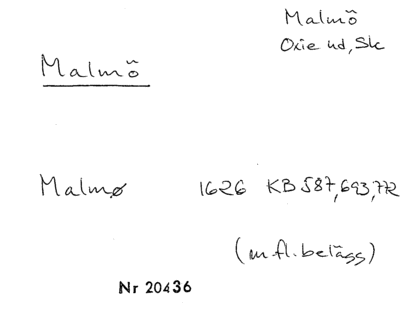 Malmö
Oxie hd, Sk
Malmö
Malmø 1626 KB 587, 693, 772
(m.fl. belägg)
Nr 20436